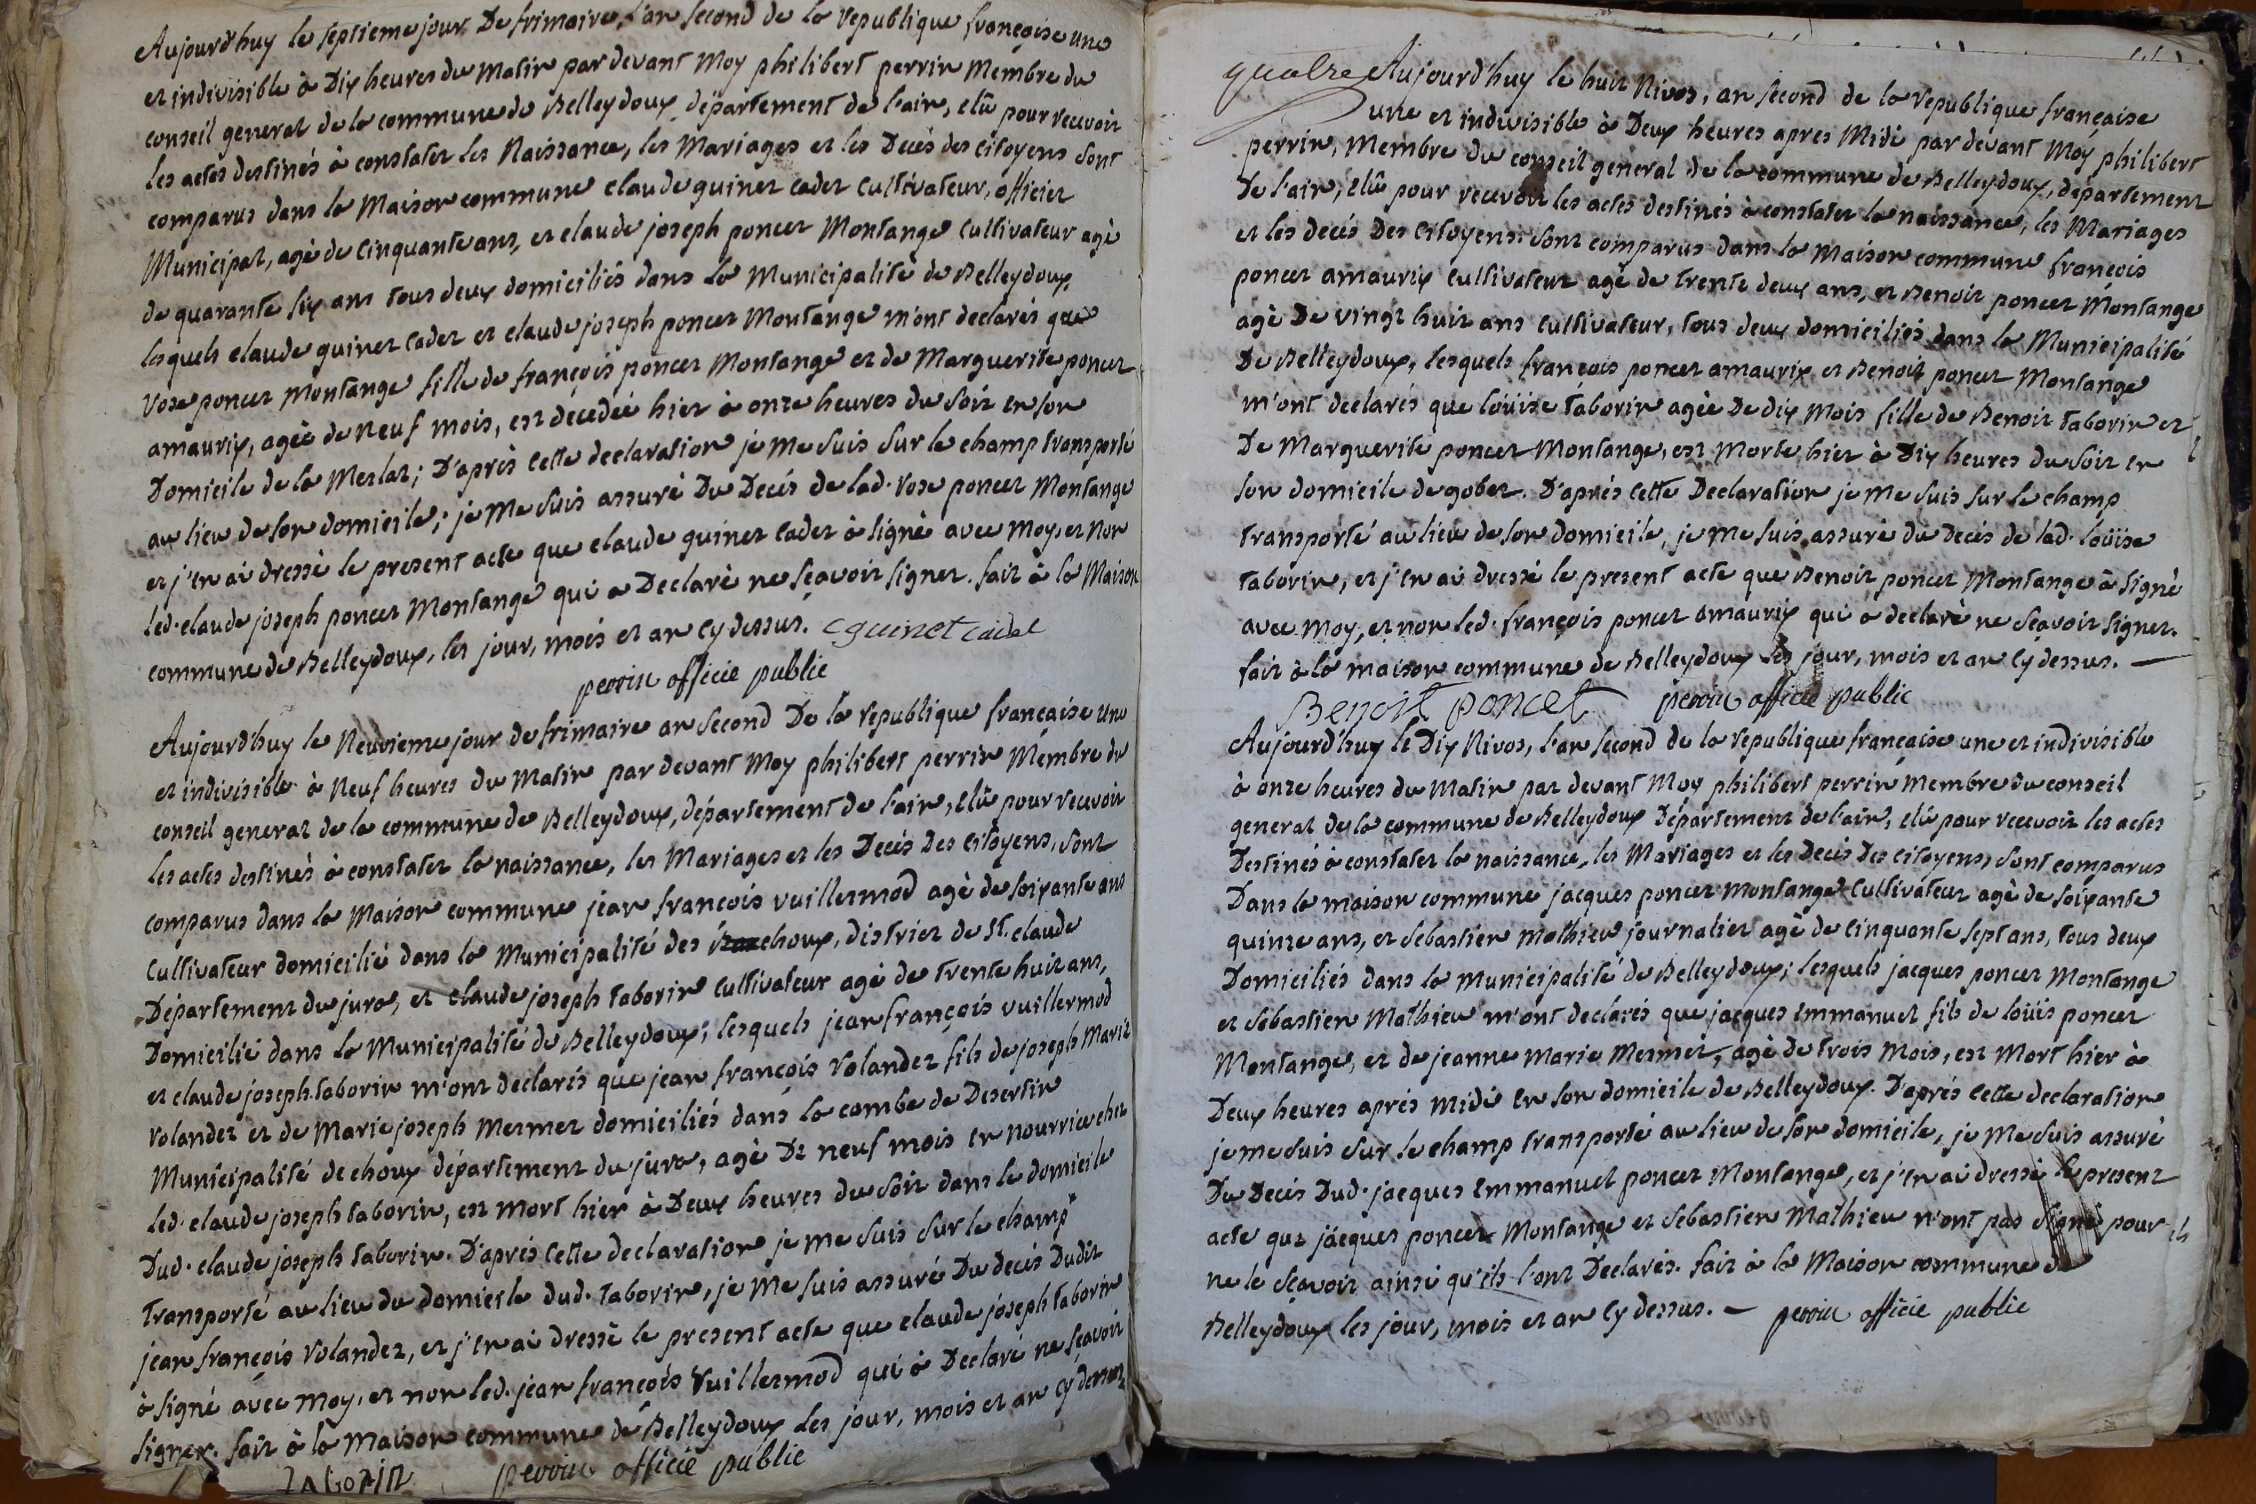 Aujourd'huy le septieme jour De frimaire, l'an second de la republique françoise une
et indivisible à Dix heures du Matin par devant Moy philibert perrin Membre du
conseil general de la commune de Belleydoux, département de l'ain, elû pour recevoir
les actes destinés à constater les Naissance, les Mariages et les Decés des citoyens sont
comparus dans la Maison commune claude guinet cadet cultivateur, officier
Municipal, agé de cinquante ans, et claude joseph poncet Montange cultivateur agé
de quarante six ans tous deux domiciliés dans la Municipalité de Belleydoux,
lesquels claude guinet cadet et claude joseph poncet Montange m'ont declarés que
rose poncet montange fille de françois poncet Montange et de Marguerite poncet
amaurix, agèe de neuf mois, est décedée hier à onze heures du soir en son
Domicile de la Merlat; D'après cette declaration je me suis sur le champ transporté
au lieu de son domicile; je me suis assuré Du Decés de lad. rose poncet Montange
et j'en ai dressé le present acte que claude guinet cadet à signé avec moy, et non
led. claude joseph poncet Montange qui a Declaré ne sçavoir signer. fait à la Maison
commune de Belleydoux, les jour, mois et an cy dessus. C guinet cadet
perrin officie public
Aujourd'huy le Neuvieme jour de frimaire an second De la republique française une
et indivisible à Neuf heures du Matin par devant Moy philibert perrin Membre du
conseil general de la commune de Belleydoux, département de l'ain, elû pour recevoir
les actes destinés à constater la naissance, les Mariages et les Decés Des citoyens, sont
comparus dans la Maison commune jean françois vuillermod agé de soixante ans
cultivateur domicilié dans la Municipalité des choux, district de St. claude
Département du jura, et claude joseph taborin cultivateur agé de trente huit ans,
Domicilié dans la Municipalité de Belleydoux; lesquels jean françois vuillermod
et claude joseph taborin m'ont declarés que jean françois rolandez fils de joseph Marie
rolandez et de Marie joseph Mermet domiciliés dans la combe de Desertin
Municipalité de choux département du jura, agé De neuf mois en nourrice chez
led. claude joseph taborin, est mort hier à Deux heures du soir dans le domicile
Dud. claude joseph taborin. D'aprés cette declaration je me suis sur le champ
transporté au lieu du domicile dud. taborin, je me suis assuré Du decés Dudit
jean françois rolandez, et j'en ai dressé le present acte que claude joseph taborin
à signé avec moy, et non led. jean françois vuillermod qui à Declaré ne sçavoir
signer. fait à la maison commune de Belleydoux les jour, mois et an cy dessus
taborin perrin officie public
quatre Aujourd'huy le huit Nivos, an second de la republique française
une et indivisible à Deux heures apres Midi par devant Moy philibert
perrin, Membre du conseil general de la commune de Belleydoux, departement
De l'ain, elû pour recevoir les actes destinés à constater la naissance, les Mariages
et les decés Des citoyens sont comparus dans la Maison commune françois
poncet amaurix cultivateur agé de trente deux ans, et Benoit poncet Montange
agé De vingt huit ans cultivateur, tous deux domiciliés dans la Municipalité
De Belleydoux, lesquels françois poncet amaurix et Benoit poncet Montange
m'ont declarés que loüise taborin agèe De dix mois fille de Benoit taborin et
De Marguerite poncet Montange, est Morte hier à Dix heures du soir en
son domicile de gobet. D'aprés cette Declaration je me suis sur le champ
transporté au lieu de son domicile, je me suis assuré du Decés de lad. loüise
taborin, et j'en ai dressé le present acte que Benoit poncet Montange à signé
avec moy, et non led. françois poncet amaurix qui à declaré ne sçavoir signer.
fait à la maison commune de Belleydoux les jour, mois et an cy dessus. —
Benoit poncet perrin officie public
Aujourd'huy le Dix Nivos, l'an second de la republique française une et indivisible
à onze heures du Matin par devant Moy philibert perrin Membre du conseil
general de la commune de Belleydoux Département de l'ain, elû pour recevoir les actes
Destinés à constater la naissance, les Mariages et les Decés Des citoyens, sont comparus
Dans la maison commune jacques poncet montange cultivateur agé de soixante
quinze ans, et sebastien mathieu journalier agé de cinquante sept ans, tous deux
Domiciliés dans la Municipalité de Belleydoux; lesquels jacques poncet Montange
et sebastien Mathieu m'ont declarés que jacques Emmanuel fils de loüis poncet
Montange, et de jeanne marie Mermet, agé de trois mois, est Mort hier à
Deux heures aprés midi en son domicile de Belleydoux. D'aprés cette declaration
je me suis sur le champ transporté au lieu de son domicile, je me suis assuré
Du Decés Dud. jacques Emmanuel poncet Montange, et j'en ai dressé le present
acte que jacques poncet Montange et sebastien Mathieu n'ont pas signé pour
ne le sçavoir ainsi qu'ils l'ont Declarés. fait à la Maison commune de
Belleydoux les jour, mois et an cy dessus. — perrin officie public